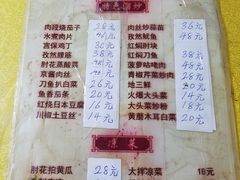 特色小炒
肉段烧茄子 38元 肉丝炒蒜苗 36元
水煮肉片 48元 孜然鱿鱼 48元
宫保鸡丁 38元 红焖肘块
孜然腰 红焖刀鱼 48元
肘花蒸酸菜 48元 菠萝咕咾肉 48元
京酱肉丝 青椒芹菜炒肉 28元
刀鱼扒白菜 26元 地三鲜 20元
鱼香茄条 20元 大火爆大头菜 14元
红烧日本豆腐 16元 大头菜炒粉 18元
川椒土豆丝 14元 黄蘑木耳白菜 20元
凉菜
肘花拍黄瓜 28元 大拌凉菜 18元